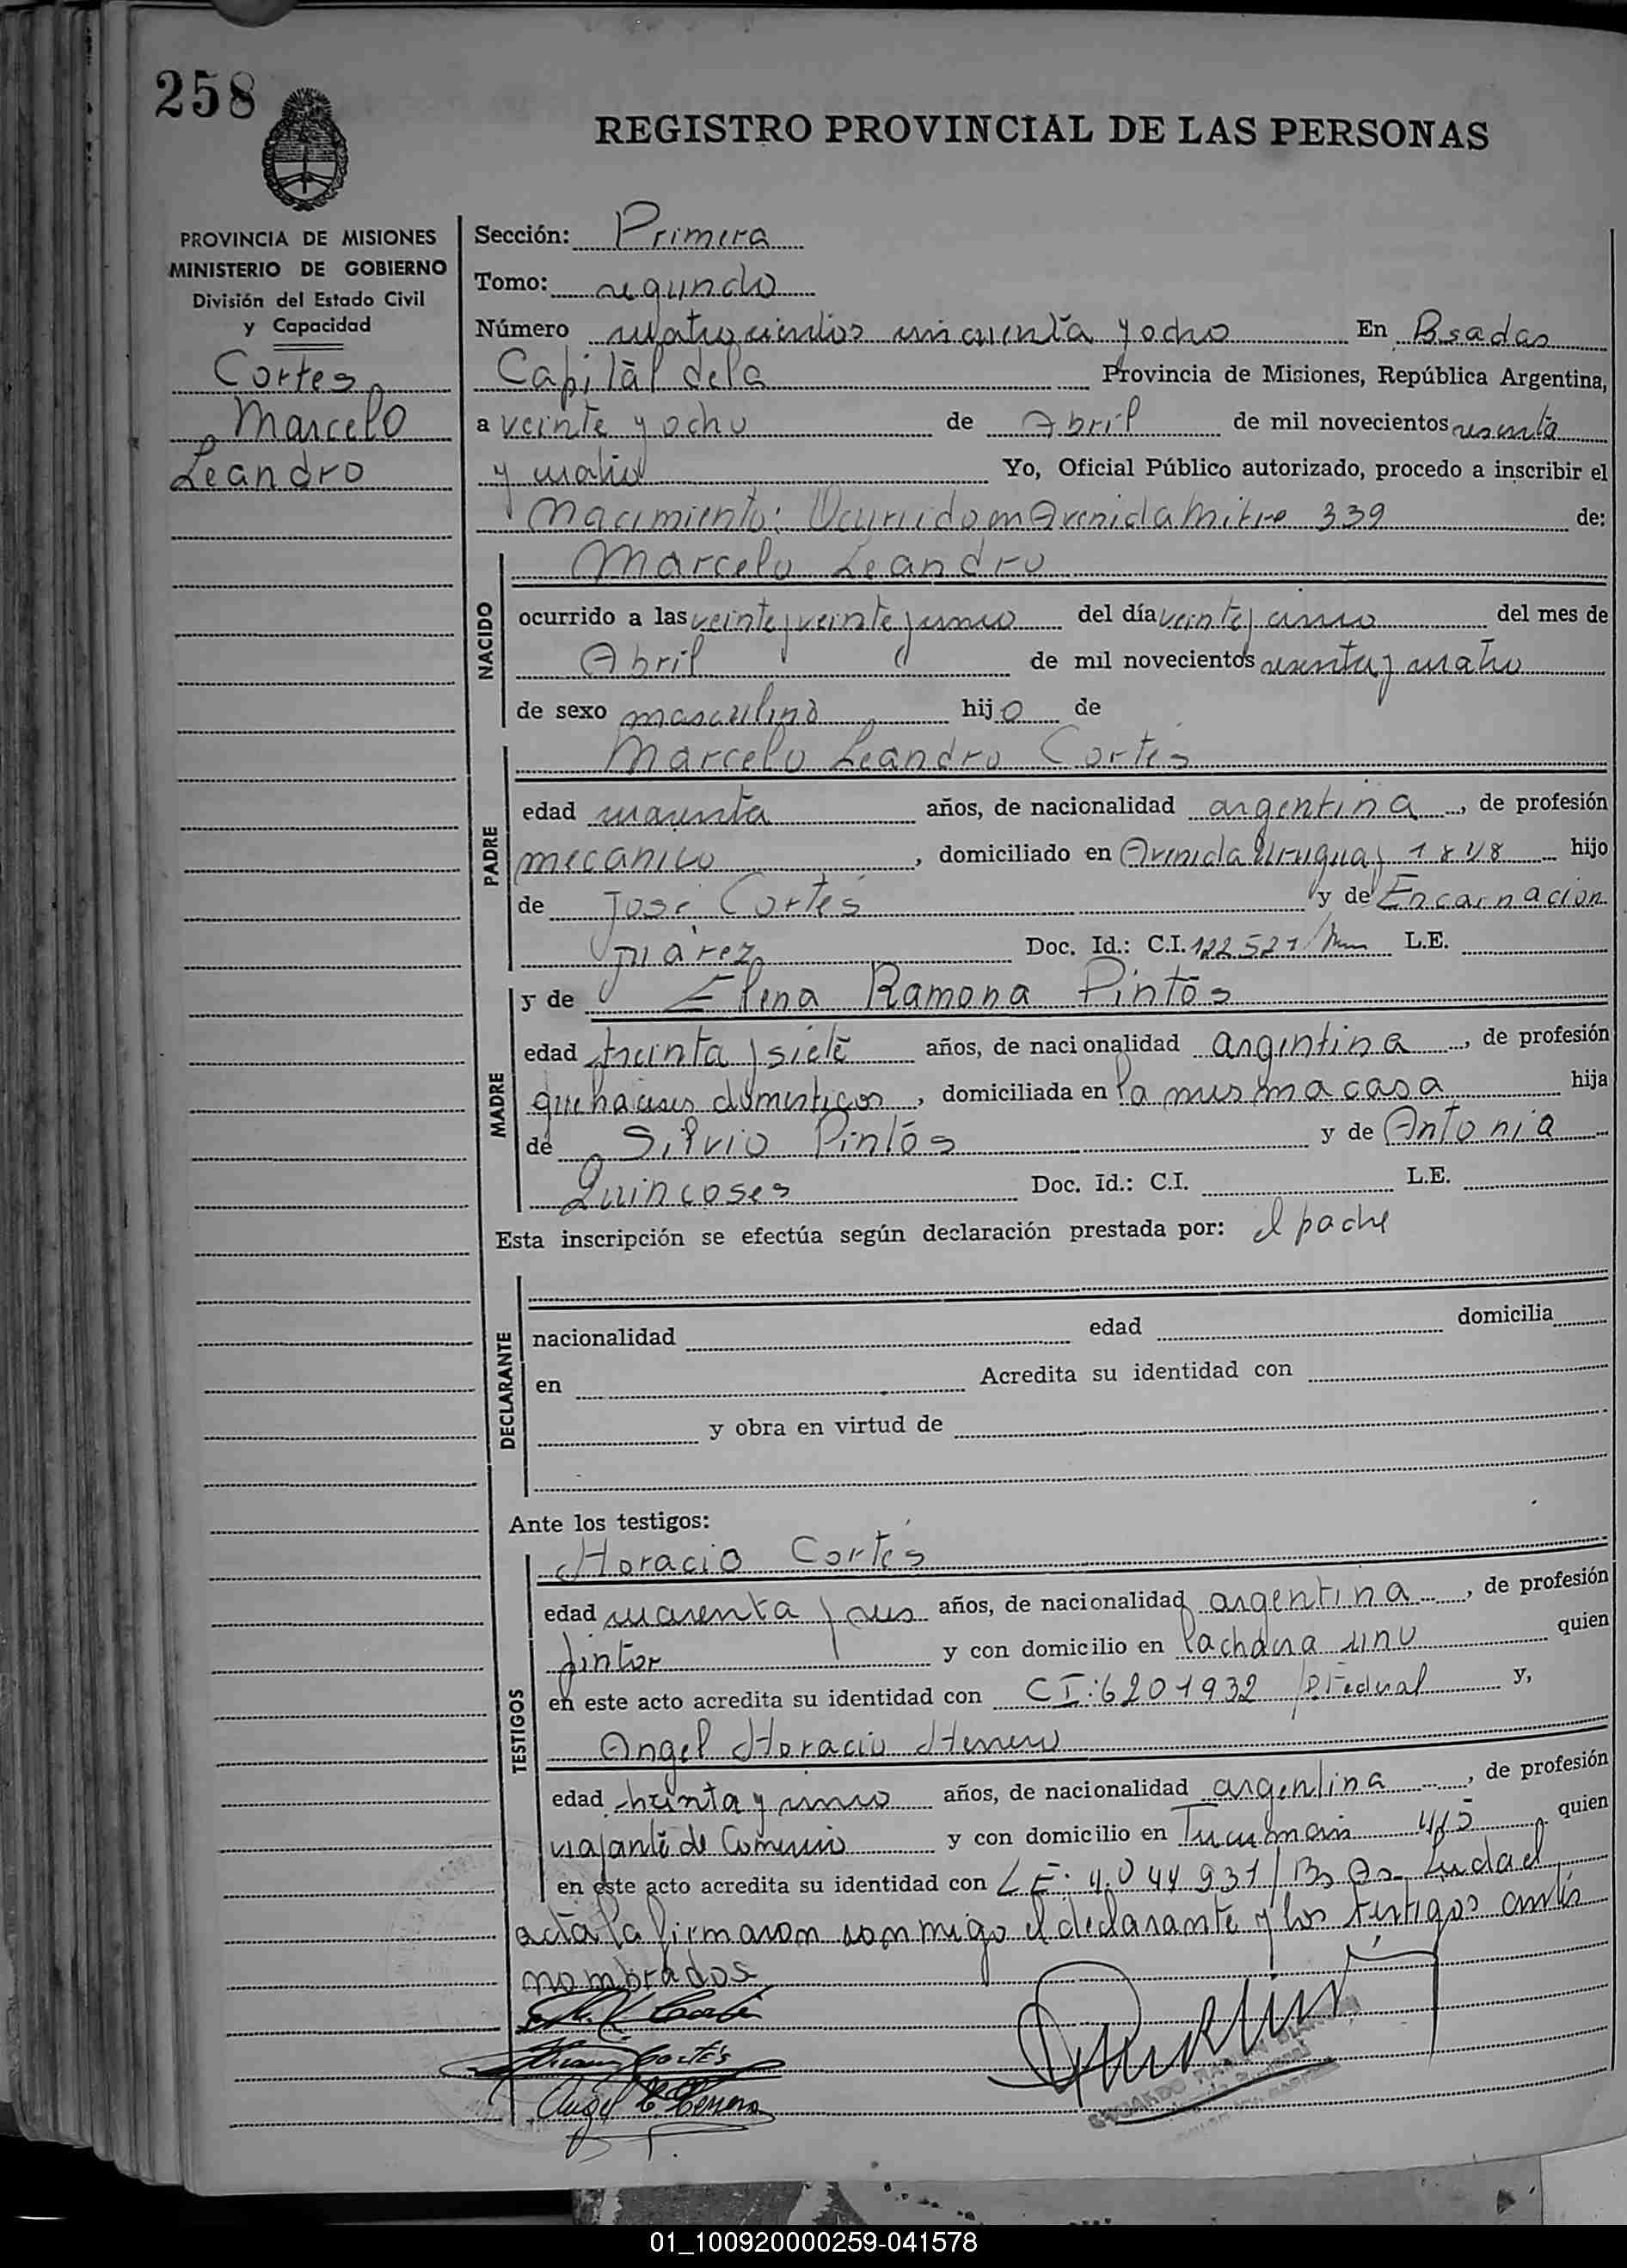 258
REGISTRO PROVINCIAL DE LAS PERSONAS
PROVINCIA DE MISIONES
MINISTERIO DE GOBIERNO
División del Estado Civil
y Capacidad
Cortes
Marcelo
Leandro
Sección: Primera
Tomo: segundo
Número cuatrocientos cincuenta y ocho En Psadas
Capital de la Provincia de Misiones, República Argentina,
a veinte y ocho de Abril de mil novecientos sesenta
y cuatro Yo, Oficial Público autorizado, procedo a inscribir el
Nacimiento: Ocurrido en Avenida Mitre 339 de:
NACIDO
Marcelo Leandro
ocurrido a las veinte y veinte y cinco del día veinte y cinco del mes de
Abril de mil novecientos sesenta y cuatro
de sexo masculino hijo de
PADRE
Marcelo Leandro Cortés
edad cuarenta años, de nacionalidad argentina, de profesión
mecanico, domiciliado en Avenida Uruguay 1848 hijo
de José Cortés y de Encarnacion
Juárez Doc. Id.: C.I. 122.521 L.E.
MADRE
y de Elena Ramona Pintos
edad treinta y siete años, de nacionalidad argentina, de profesión
quehaceres domesticos, domiciliada en la misma casa hija
de Silvio Pintos y de Antonia
Quincoses Doc. Id.: C.I. L.E.
Esta inscripción se efectúa según declaración prestada por: el padre
DECLARANTE
nacionalidad edad domicilia
en Acredita su identidad con
y obra en virtud de
Ante los testigos:
TESTIGOS
Horacio Cortés
edad cuarenta y seis años, de nacionalidad argentina, de profesión
pintor y con domicilio en uno quien
en este acto acredita su identidad con CI: 6201932 /P. Federal y,
Angel Horacio Herrero
edad treinta y cinco años, de nacionalidad argentina, de profesión
viajante de Comercio y con domicilio en Tucuman 415 quien
en este acto acredita su identidad con LE: 4.044931/Bs As Leida el
acta la firmaron conmigo el declarante y los testigos antes
nombrados
Cortés
Angel
01_100920000259-041578